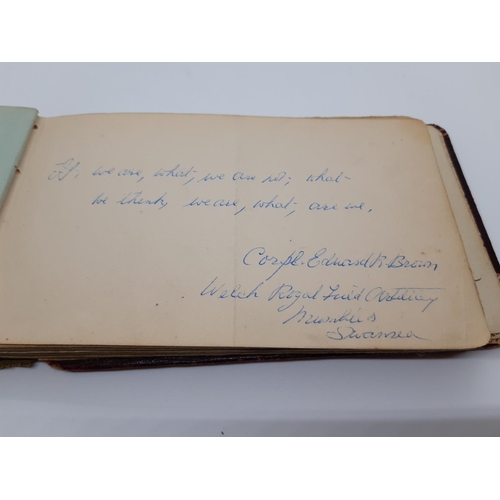 If, we are, what, we are not; what
we think, we are, what, are we.
Corpl. Edward R. Brown
Welsh Royal Field Artillery
Mumbles
Swansea